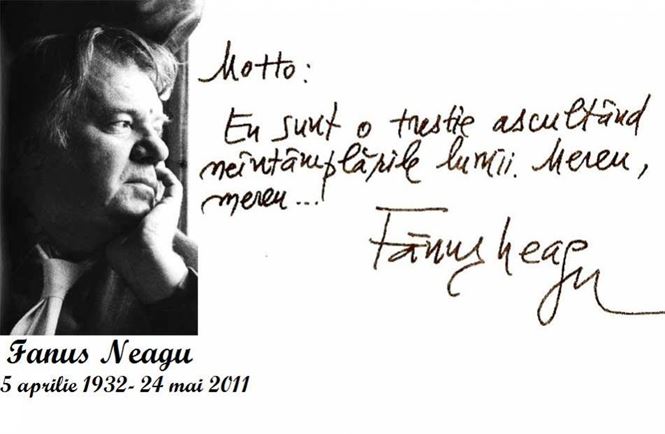 Motto:
Eu sunt o trestie ascultând
neîntâmplările lumii. Mereu,
mereu...
Fănuș Neagu
Fanus Neagu
5 aprilie 1932- 24 mai 2011